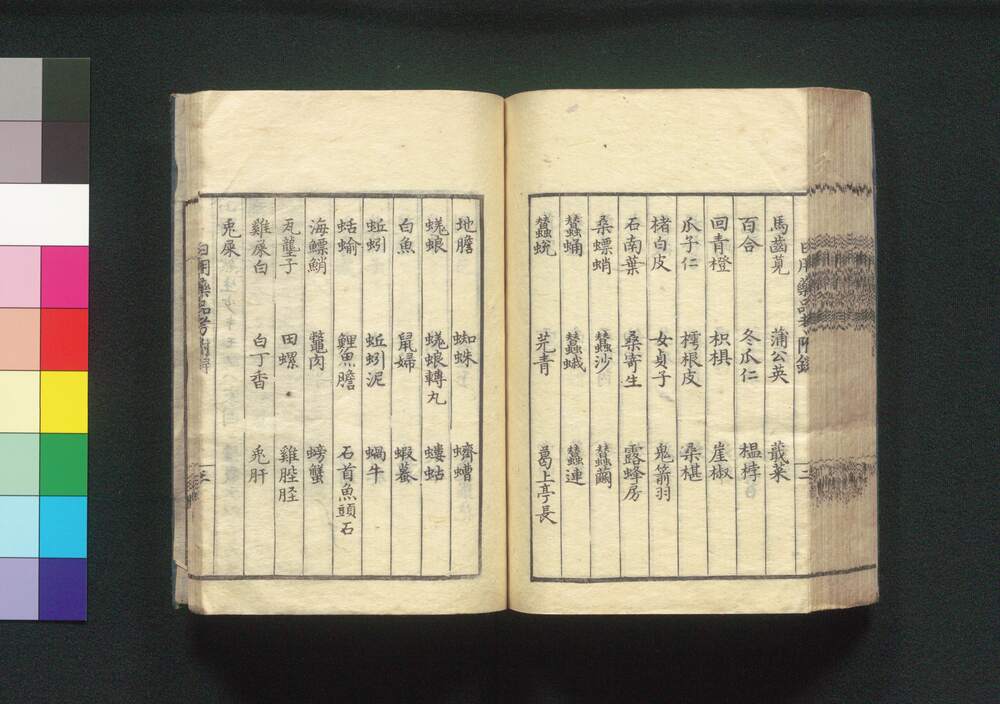 馬齒莧 蒲公英 蕺菜
百合 冬瓜仁 榲桲
回青橙 枳椇 崖椒
瓜子仁 樗根皮 桑椹
楮白皮 女貞子 鬼箭羽
石南葉 桑寄生 露蜂房
桑螵蛸 蠶沙 蠶繭
蠶蛹 蠶蛾 蠶連
蠶蛻 芫青 葛上亭長
二
地膽 蜘蛛 蠐螬
蜣蜋 蜣蜋轉丸 螻蛄
白魚 鼠婦 蝦蟇
蚯蚓 蚯蚓泥 蝸牛
蛞蝓 鯉魚膽 石首魚頭石
海鰾鮹 鼈肉 螃蟹
瓦壟子 田螺 雞䏶胵
雞屎白 白丁香 兎肝
兎屎
日用藥品考附録